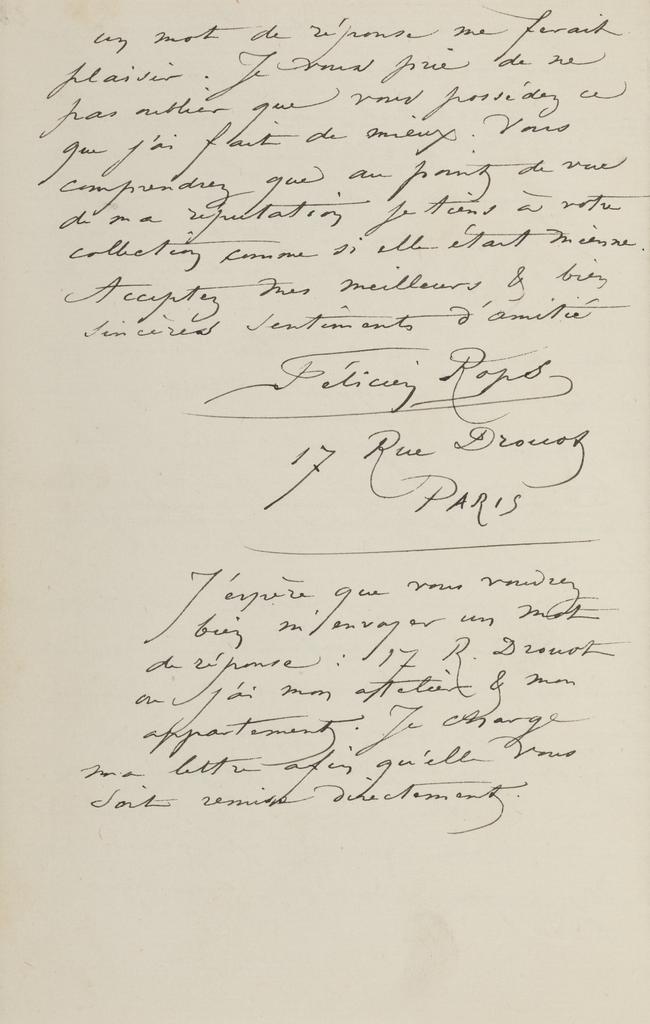 un mot de réponse me ferait
plaisir. Je vous prie de ne
pas oublier que vous possédez ce
que j'ai fait de mieux. Vous
comprendrez que au point de vue
de ma réputation je tiens à votre
collection comme si elle était mienne.
Acceptez mes meilleurs & bien
sincères sentiments d'amitié
Félicien Rops
17 Rue Drouot
PARIS
J'espère que vous voudrez
bien m'envoyer un mot
de réponse : 17 R. Drouot
ou j'ai mon atelier & mon
appartement. Je charge
ma lettre afin qu'elle vous
soit remise directement.